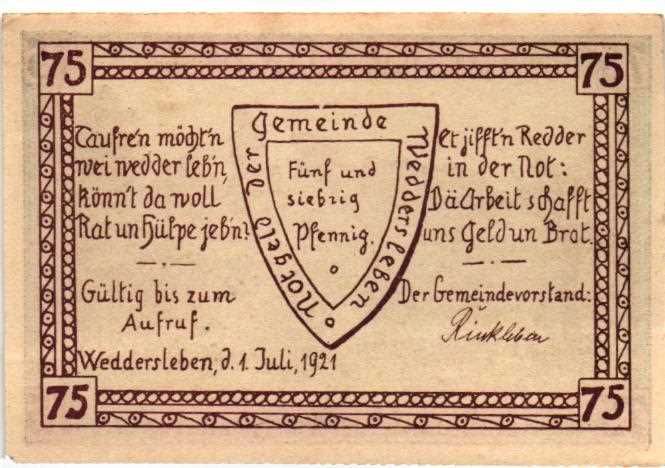 75
75
Taufre'n möcht'n
wei wedder leb'n,
könn't da woll
Rat un Hülpe jeb'n?
Gültig bis zum
Aufruf.
Weddersleben, d. 1. Juli, 1921
Notgeld der Gemeinde Weddersleben
Fünf und
siebzig
Pfennig.
Et jifft'n Redder
in der Not:
Dä Arbeit schafft
uns Geld un Brot.
Der Gemeindevorstand:
75
75